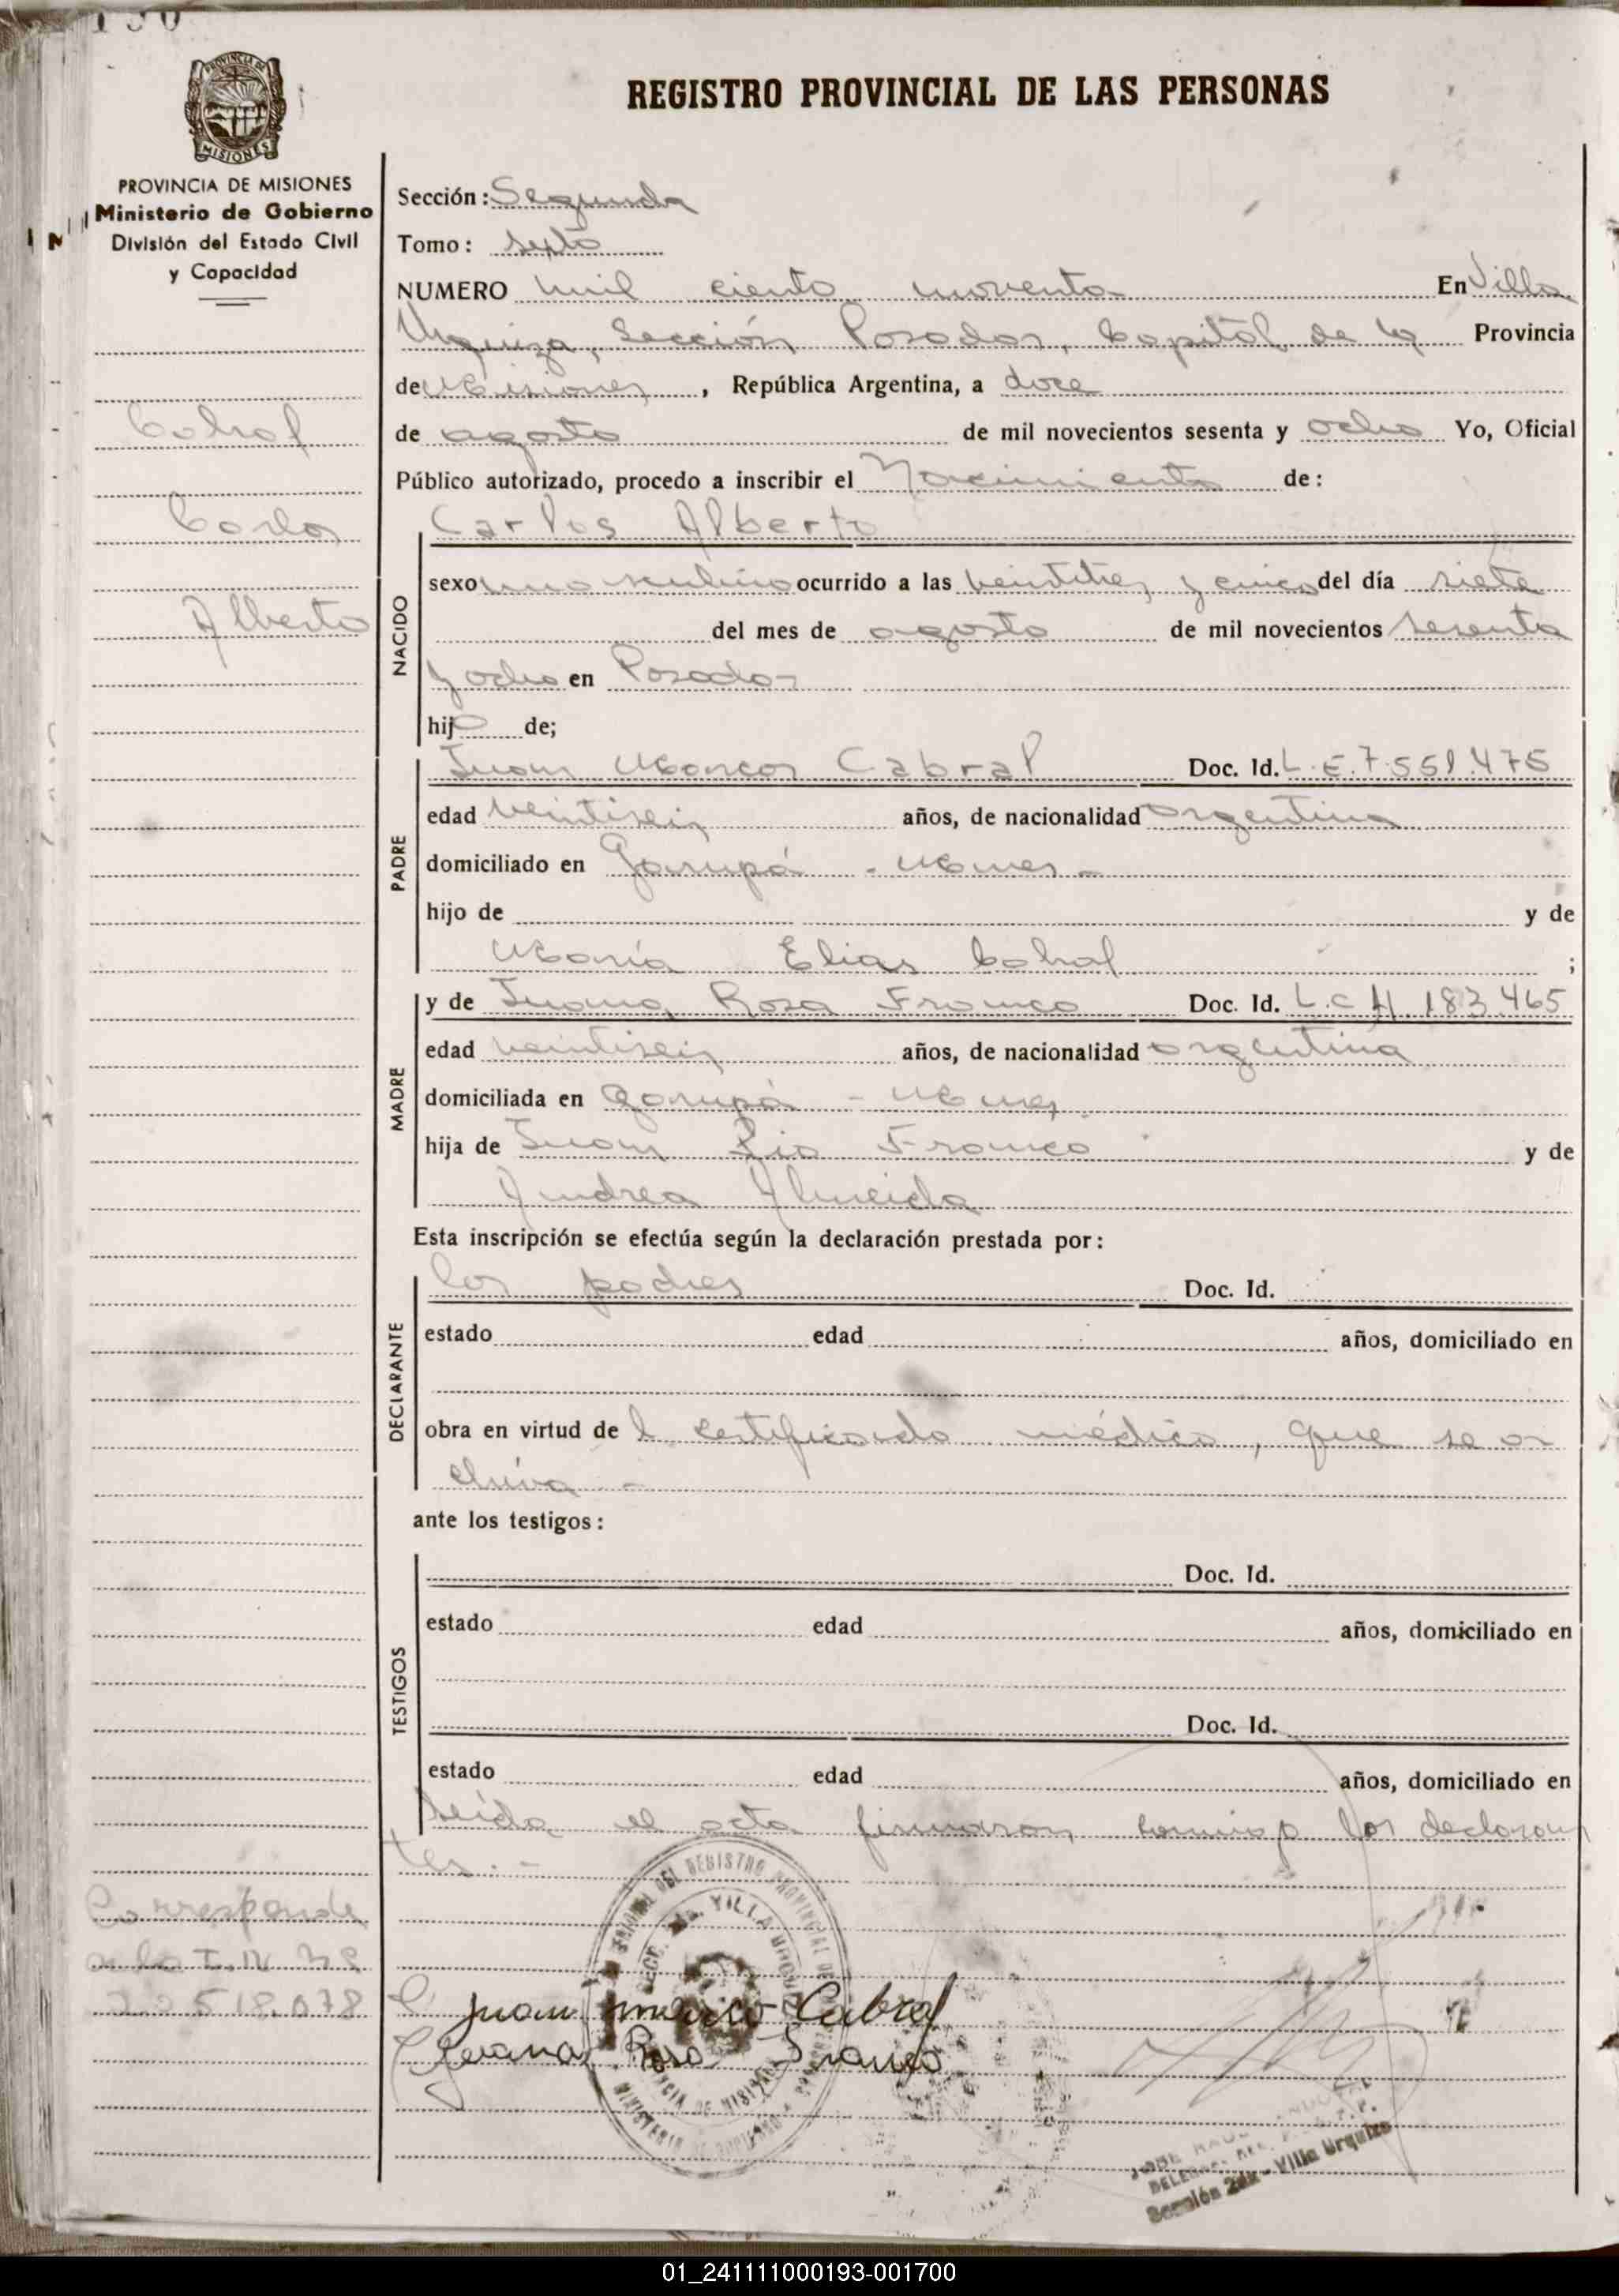 190
REGISTRO PROVINCIAL DE LAS PERSONAS
PROVINCIA DE MISIONES
Ministerio de Gobierno
División del Estado Civil
y Capacidad
Cabral
Carlos
Alberto
Sección: Segunda
Tomo: sexto
NUMERO mil ciento noventa En Villa
Urquiza, Sección Posadas, Capital de la Provincia
de Misiones, República Argentina, a doce
de agosto de mil novecientos sesenta y ocho Yo, Oficial
Público autorizado, procedo a inscribir el Nacimiento de:
NACIDO
Carlos Alberto
sexo masculino ocurrido a las veintitres y cinco del día siete
del mes de agosto de mil novecientos sesenta
y ocho en Posadas
hijo de;
PADRE
Juan Marcos Cabral Doc. Id. L.E.7.551.475
edad veintiseis años, de nacionalidad argentina
domiciliado en Garupá - Mnes -
hijo de y de
María Elias Cabral ;
MADRE
y de Juana Rosa Franco Doc. Id. L.C 4.183.465
edad veintiseis años, de nacionalidad argentina
domiciliada en Garupá - Mnes
hija de Juan Pio Franco y de
Andrea Almeida
Esta inscripción se efectúa según la declaración prestada por:
DECLARANTE
los padres Doc. Id.
estado edad años, domiciliado en
obra en virtud de l certificado médico, que se ar
chiva -
ante los testigos:
TESTIGOS
Doc. Id.
estado edad años, domiciliado en
Doc. Id.
estado edad años, domiciliado en
Leída el acta firmaron conmigo los declaran
tes. -
Corresponde
a la I.N. Nº
20.518.078
Juan Marcos Cabral
Juana Rosa Franco
JOSE RAUL
Sección 2da - Villa Urquiza
01_241111000193-001700